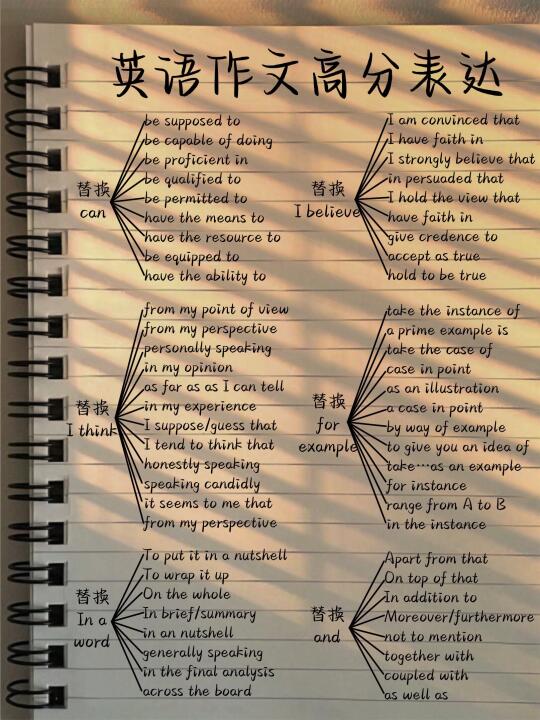 英语作文高分表达
替换
can
be supposed to
be capable of doing
be proficient in
be qualified to
be permitted to
have the means to
have the resource to
be equipped to
have the ability to
替换
I believe
I am convinced that
I have faith in
I strongly believe that
in persuaded that
I hold the view that
have faith in
give credence to
accept as true
hold to be true
替换
I think
from my point of view
from my perspective
personally speaking
in my opinion
as far as as I can tell
in my experience
I suppose/guess that
I tend to think that
honestly speaking
speaking candidly
it seems to me that
from my perspective
替换
for
example
take the instance of
a prime example is
take the case of
case in point
as an illustration
a case in point
by way of example
to give you an idea of
take…as an example
for instance
range from A to B
in the instance
替换
In a
word
To put it in a nutshell
To wrap it up
On the whole
In brief/summary
in an nutshell
generally speaking
in the final analysis
across the board
替换
and
Apart from that
On top of that
In addition to
Moreover/furthermore
not to mention
together with
coupled with
as well as